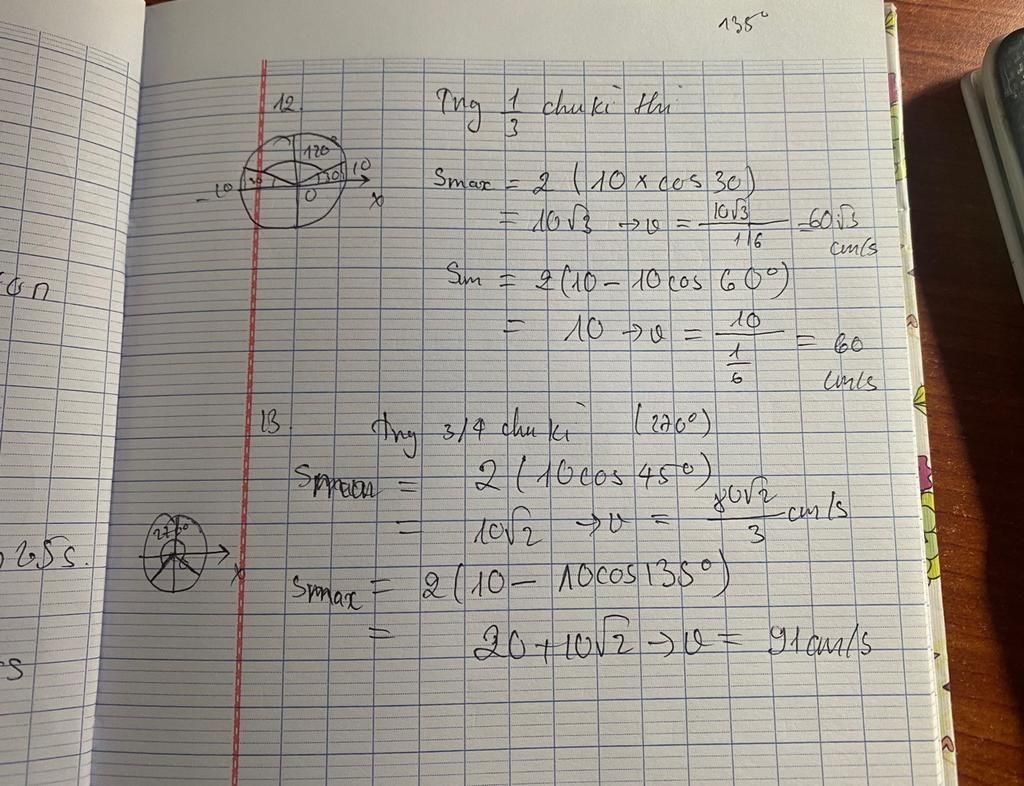 135°
12.
Tng 1/3 chu kì thì
120
30 30
-10 0 10
x
Smax = 2 (10 × cos 30)
= 10√3 → v = 10√3 / 1/6 = 60√3 cm/s
Sm = 2(10 - 10 cos 60°)
= 10 → v = 10 / (1/6) = 60 cm/s
13. Tng 3/4 chu kì (270°)
= 2 (10 cos 45°)
270°
= 10√2 → v = 80√2 / 3 cm/s
25s.
x
Smax = 2(10 - 10 cos 135°)
= 20 + 10√2 → v = 91 cm/s